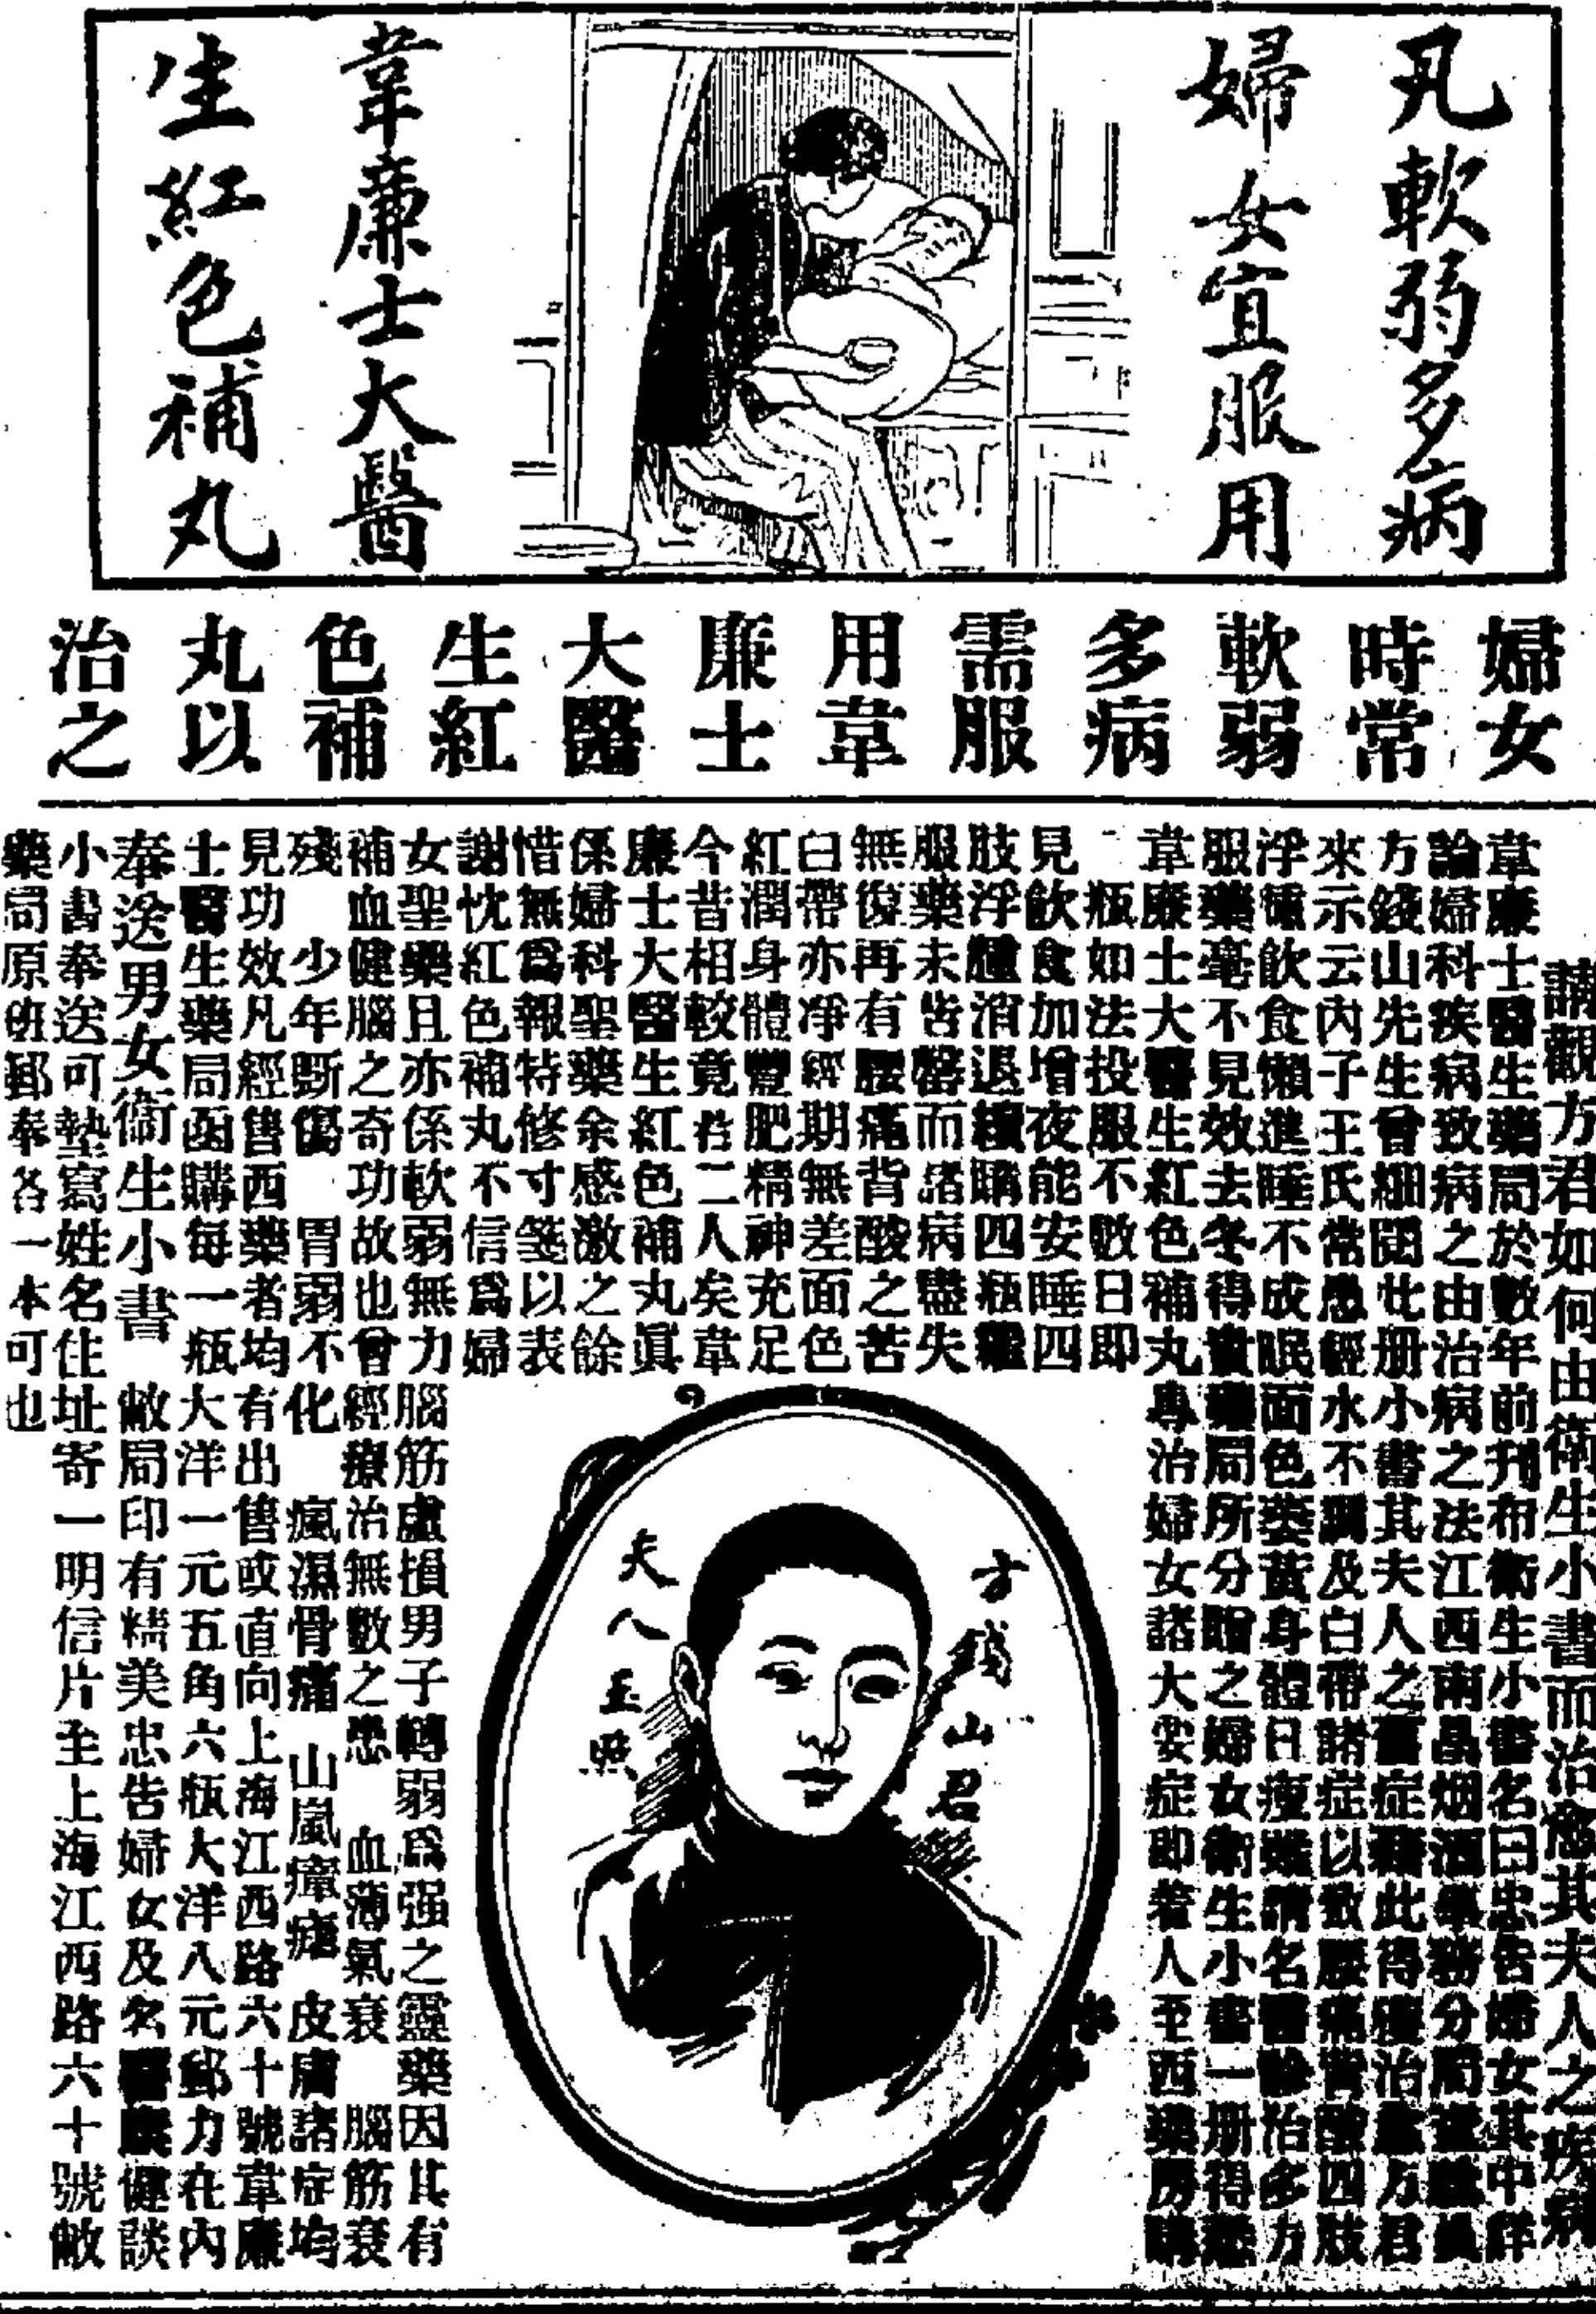 凡軟弱多病
婦女宜服用
韋廉士大醫
生紅色補丸
婦女時常軟弱多病需服用韋廉士大醫生紅色補丸以治之
請觀方君如何由衛生小書而治愈其夫人之疾病
韋廉士醫生藥局於數年前刊布衛生小書名曰忠告婦女其中詳
論婦科疾病致病之由治病之法江西南昌烟酒事務分局員
方錢山先生曾細閱此册小書其夫人之舊症藉此得療治方君
來示云內子王氏常患經水不調及白帶諸症以致腰痛背酸四肢
浮腫飲食懶進睡不成眠面色萎黃身體日瘦請名醫診治多方
服藥毫不見效去冬得貴藥局所分贈之婦女衛生小書一册得悉
韋廉士大醫生紅色補丸專治婦女諸大要症即着人至西藥房購
一瓶如法投服不數日即
見飲食加增夜能安睡四
肢浮腫消退續購四瓶繼
服藥未皆罄而諸病盡失
無復再有腰痛背酸之苦
白帶亦凈經期無差面色
紅潤身體豐肥精神充足
今昔相較竟若二人矣韋
廉士大醫生紅色補丸眞
係婦科聖藥余感激之餘
惜無爲報特修寸箋以表
謝忱紅色補丸不信爲婦
女聖藥且亦係軟弱無力腦筋虛損男子轉弱爲强之靈藥因其有
補血健腦之奇功故也曾經療治無數之患 血薄氣衰 腦筋衰
殘 少年斲傷 胃弱不化 瘋濕骨痛 山嵐瘴瘧 皮膚諸症均
見功效凡經售西藥者均有出售或直向上海江西路六十號韋廉
士醫生藥局函購每一瓶大洋一元五角六瓶大洋八元郵力在內
奉送男女衛生小書 敝局印有精美忠告婦女及名醫康健談
小書奉送可墊寫姓名住址寄一明信片至上海江西路六十號敝
藥局原班郵奉各一本可也
方錢山君
夫人玉照